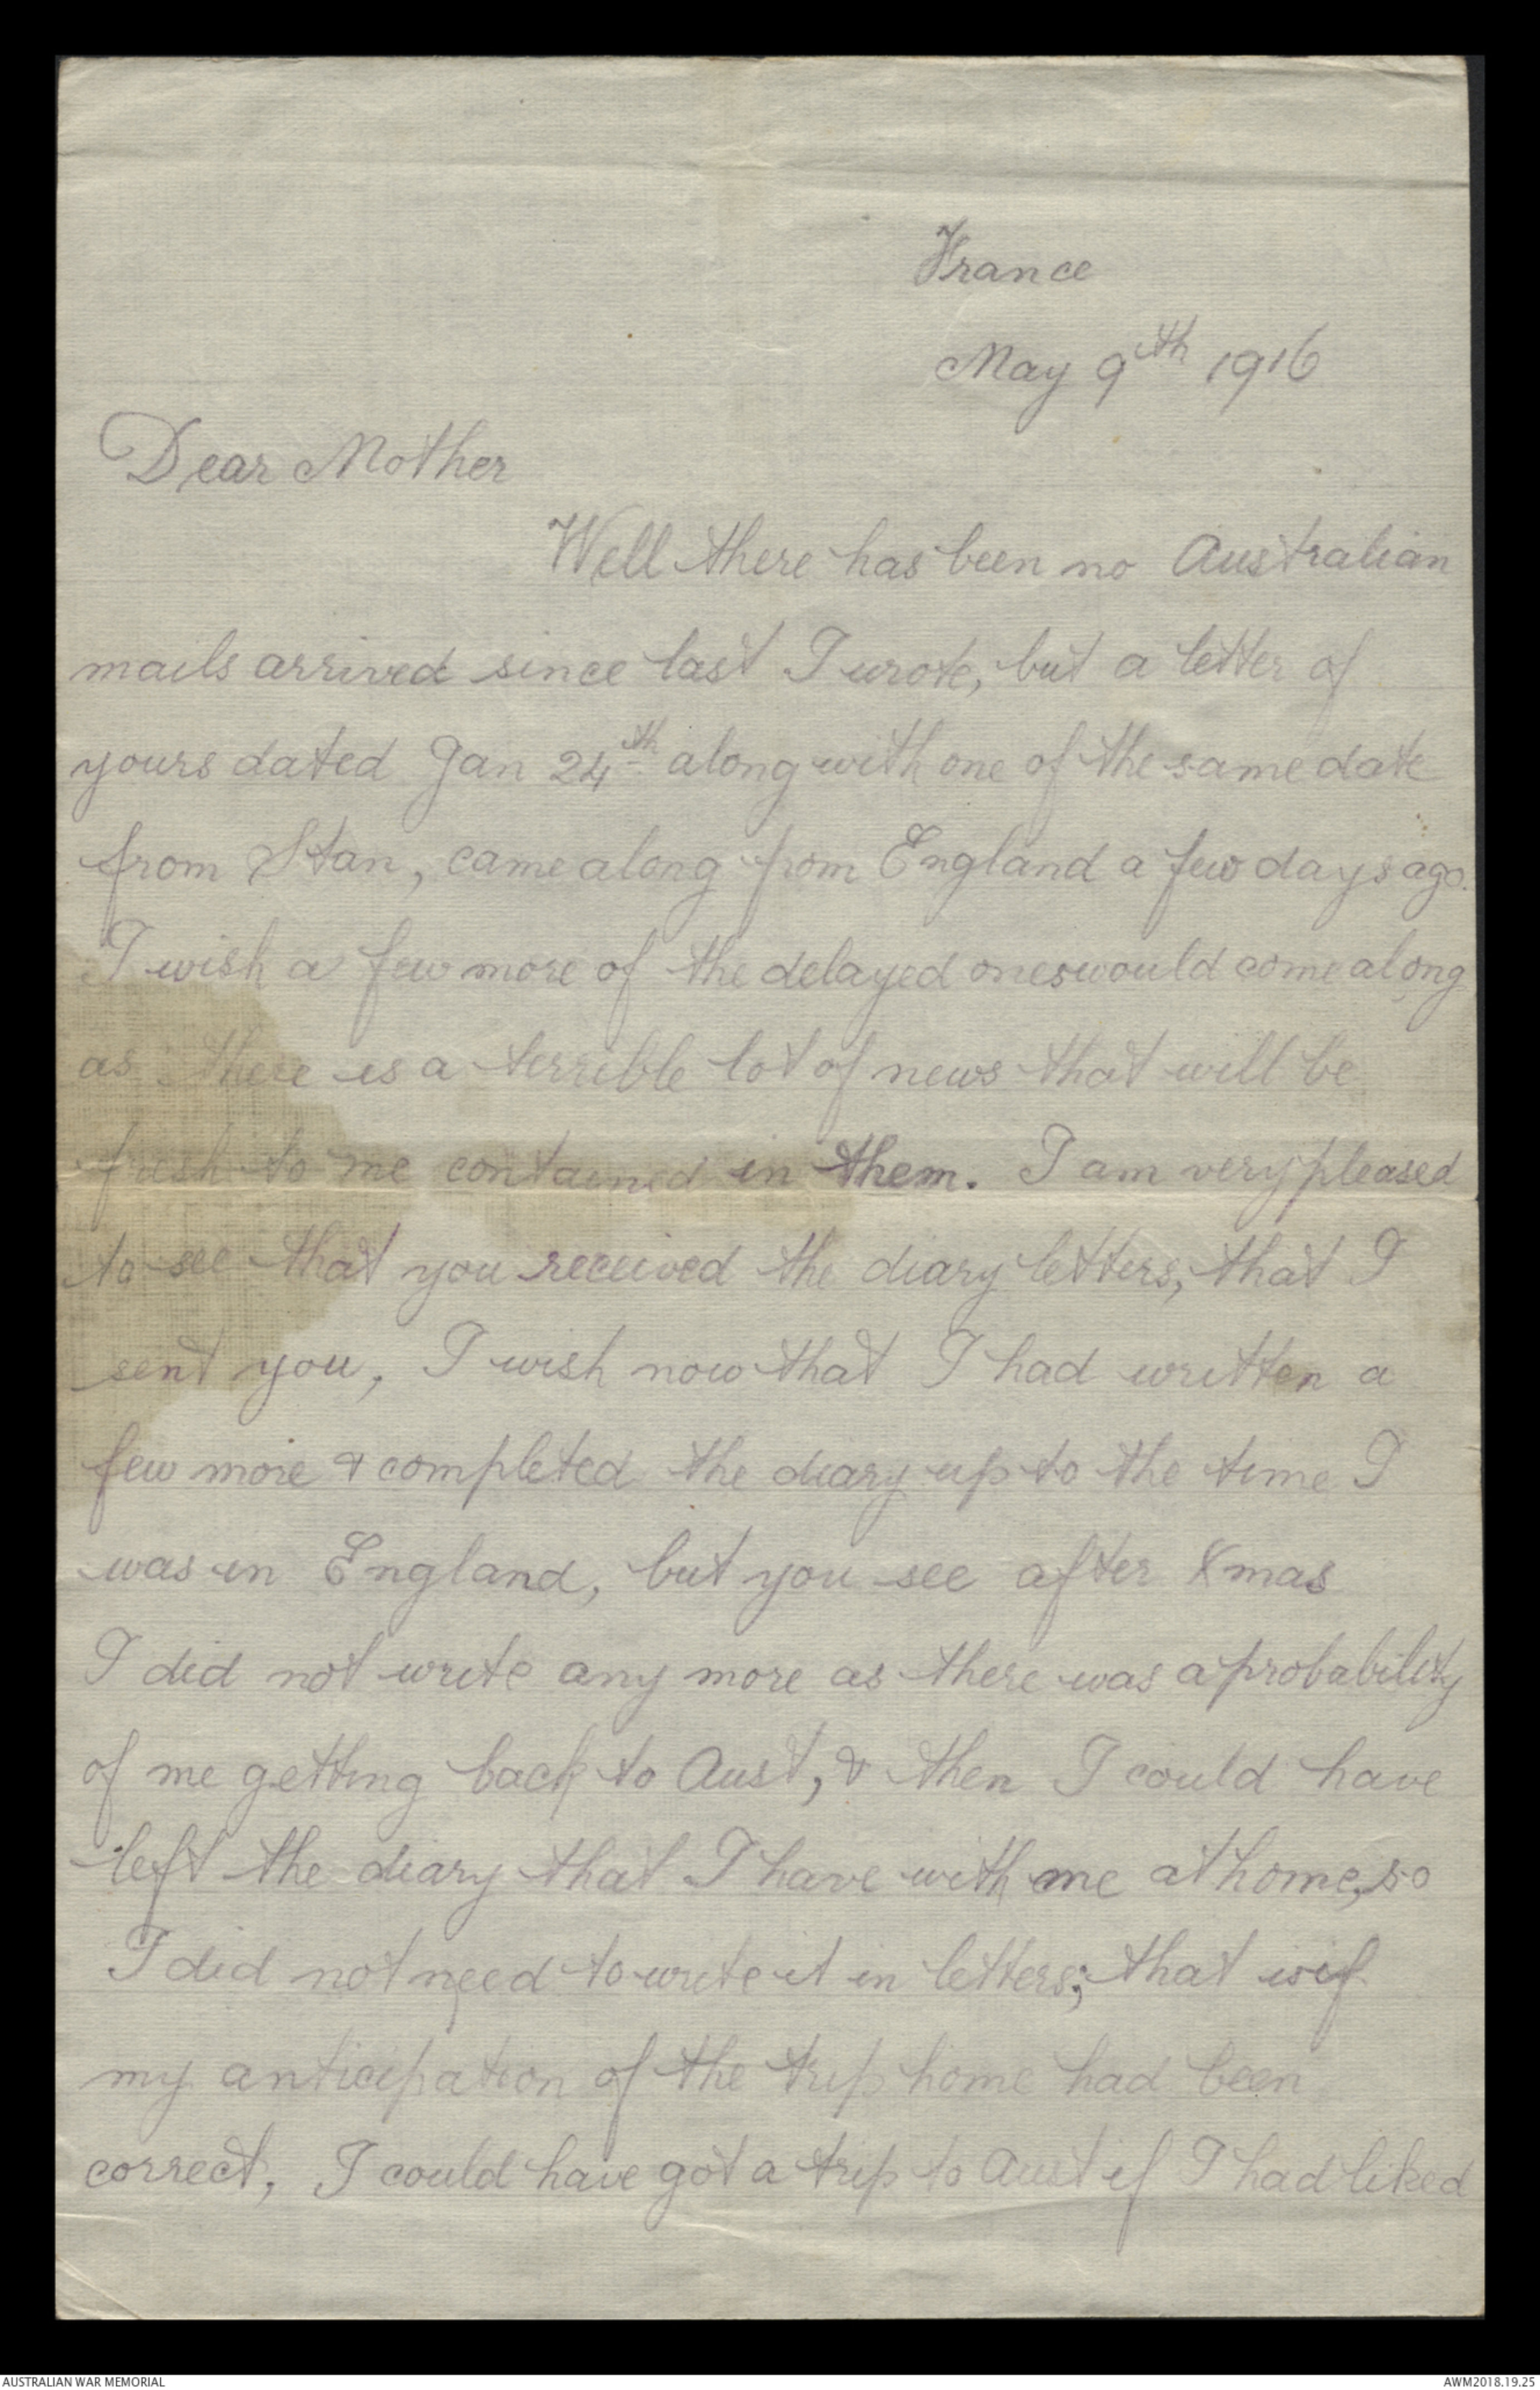 France
May 9th 1916
Dear Mother
Well there has been no Australian
mails arrived since last I wrote, but a letter of
yours dated Jan 24th along with one of the same date
from Stan, came along from England a few days ago.
I wish a few more of the delayed ones would come along
as there is a terrible lot of news that will be
fresh to me contained in them. I am very pleased
to see that you received the diary letters, that I
sent you, I wish now that I had written a
few more & completed the diary up to the time I
was in England, but you see after Xmas
I did not write any more as there was a probability
of me getting back to Aust, & then I could have
left the diary that I have with me at home, so
I did not need to write it in letters; that is if
my anticipation of the trip home had been
correct, I could have got a trip to Aust if I had liked
AUSTRALIAN WAR MEMORIAL
AWM2018.19.25